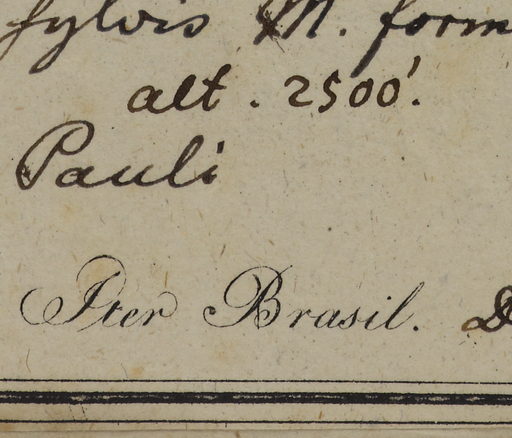 sylvis M. form
alt. 2500'.
Pauli
Iter Brasil. D